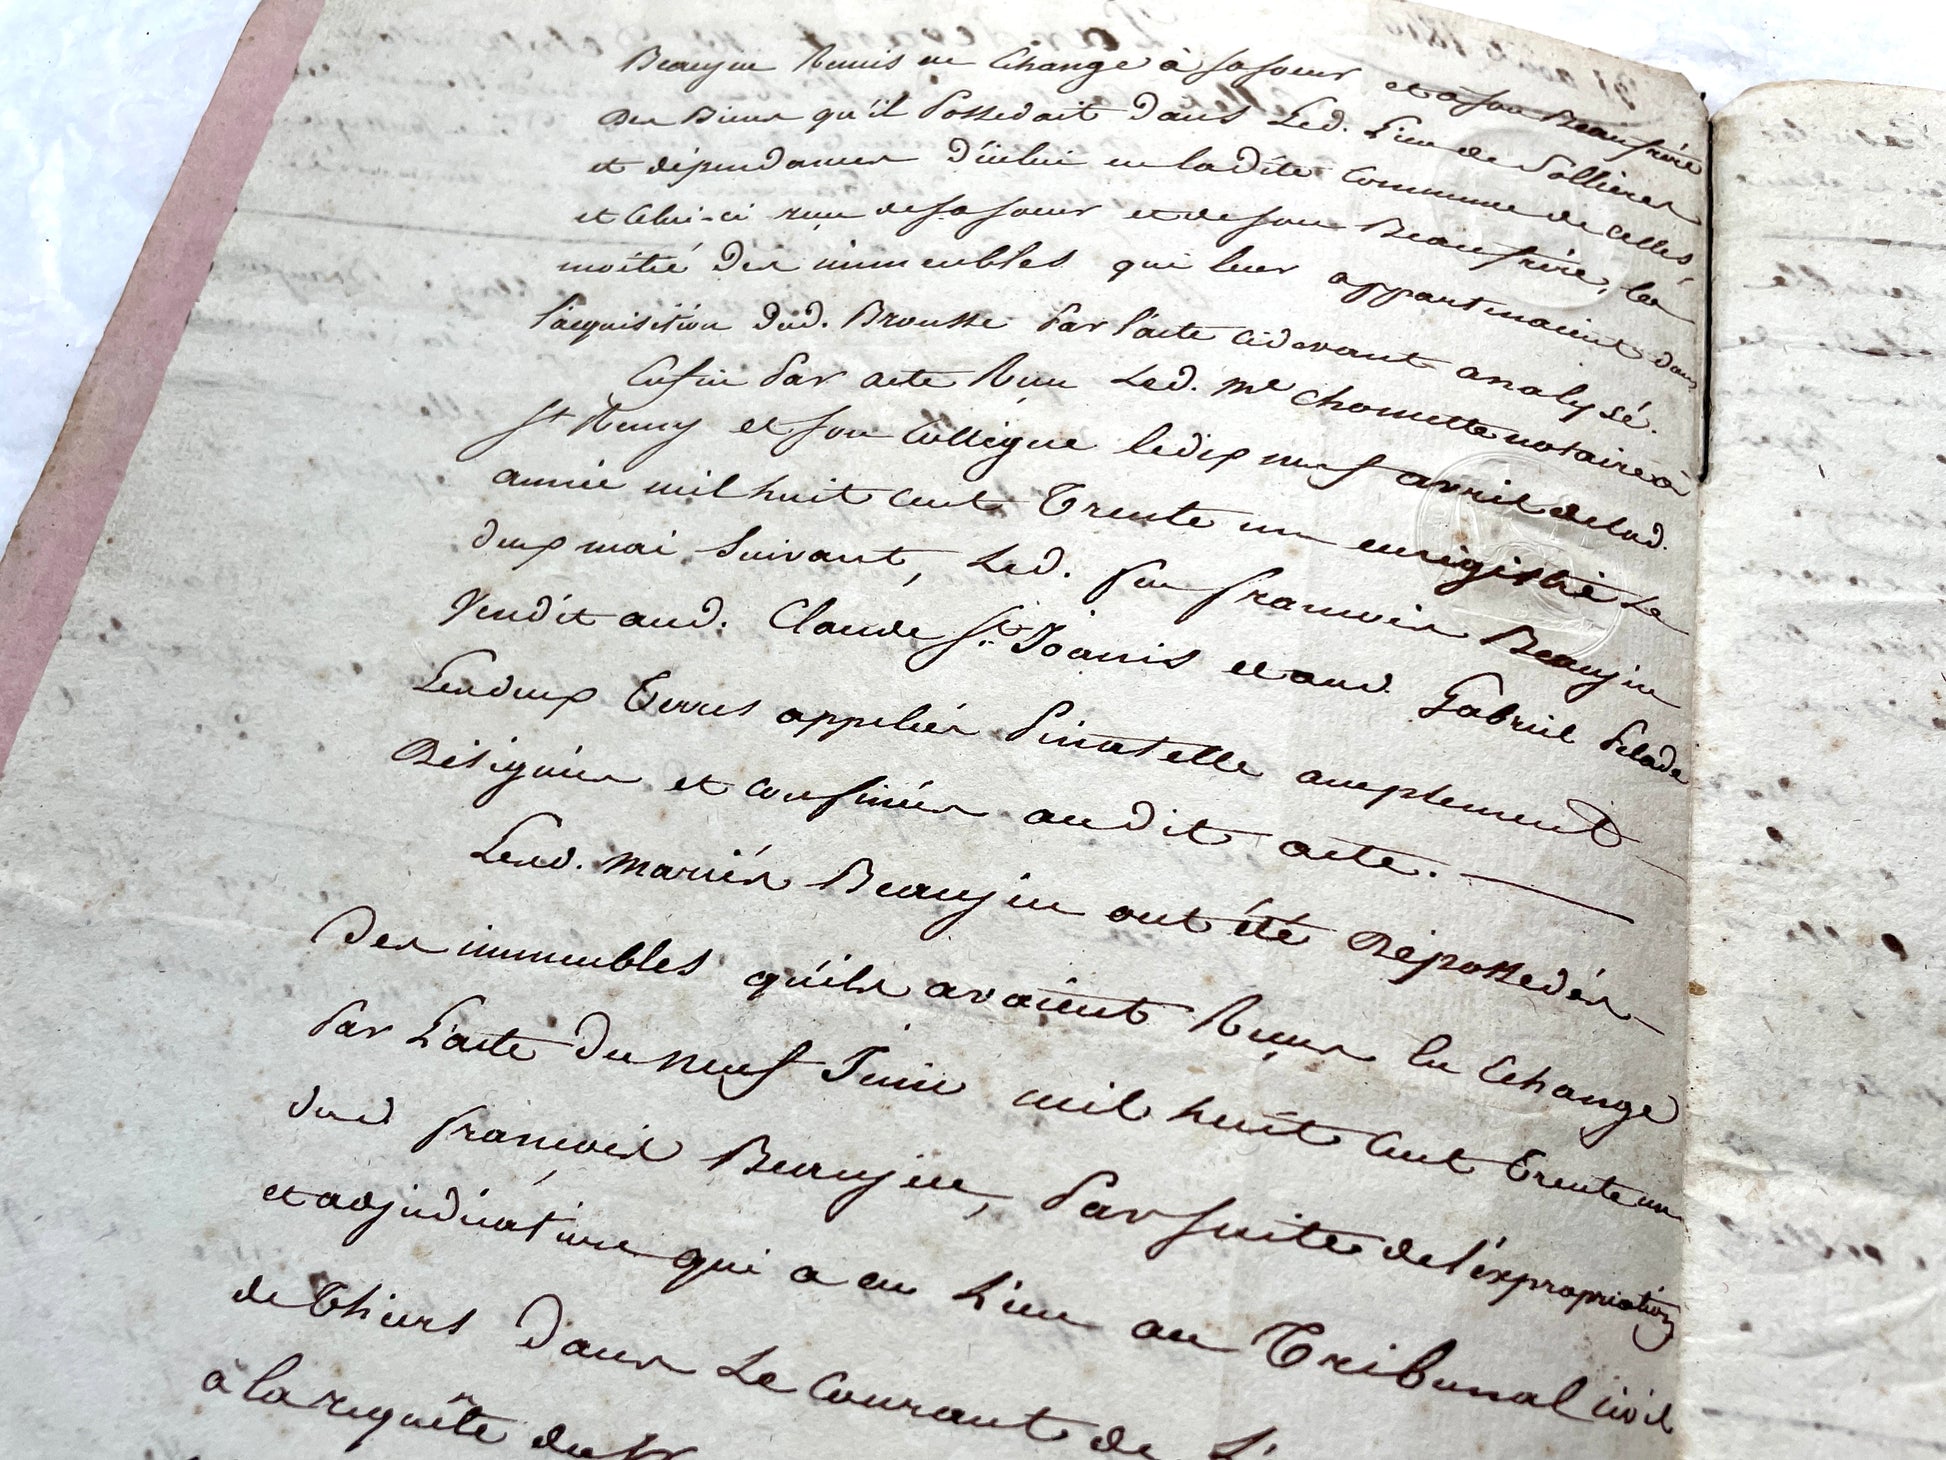 Beaujeu Remis en Echange à sa soeur et a son Beaufrère
Des Biens qu'il Possedait Dans Led. Lieu de Sollieres
et dépendances D'icelui en ladite Commune de Celles,
et Celui-ci reçu de sa soeur et de son Beaufrère, la
moitié Des immeubles qui leur appartenaient dans
l'acquisition Dud. Brousse Par l'acte cidevant analysé.
Enfin Par acte Reçu Led. Me Chomette notaire à
St Remy et son Collègue le dix neuf avril de lad.
année mil huit cent Trente un enrégistré Le
deux mai Suivant, Led. feu françois Beaujeu
Vendit aud. Claude St Joanis et aud. Gabriel Pelade
Les deux Terres appelées Pinatelle amplement
Désignées et confinées audit acte.
Lesd. mariés Beaujeu ont été Dépossedés
Des immeubles qu'ils avaient Reçus En Echange
Par L'acte Du neuf Juin mil huit Cent Trente un
dud françois Beaujeu, Par suite de l'éxpropriation
et adjudication qui a eu Lieu au Tribunal civil
de Thiers Dans Le Courant de
à la requête